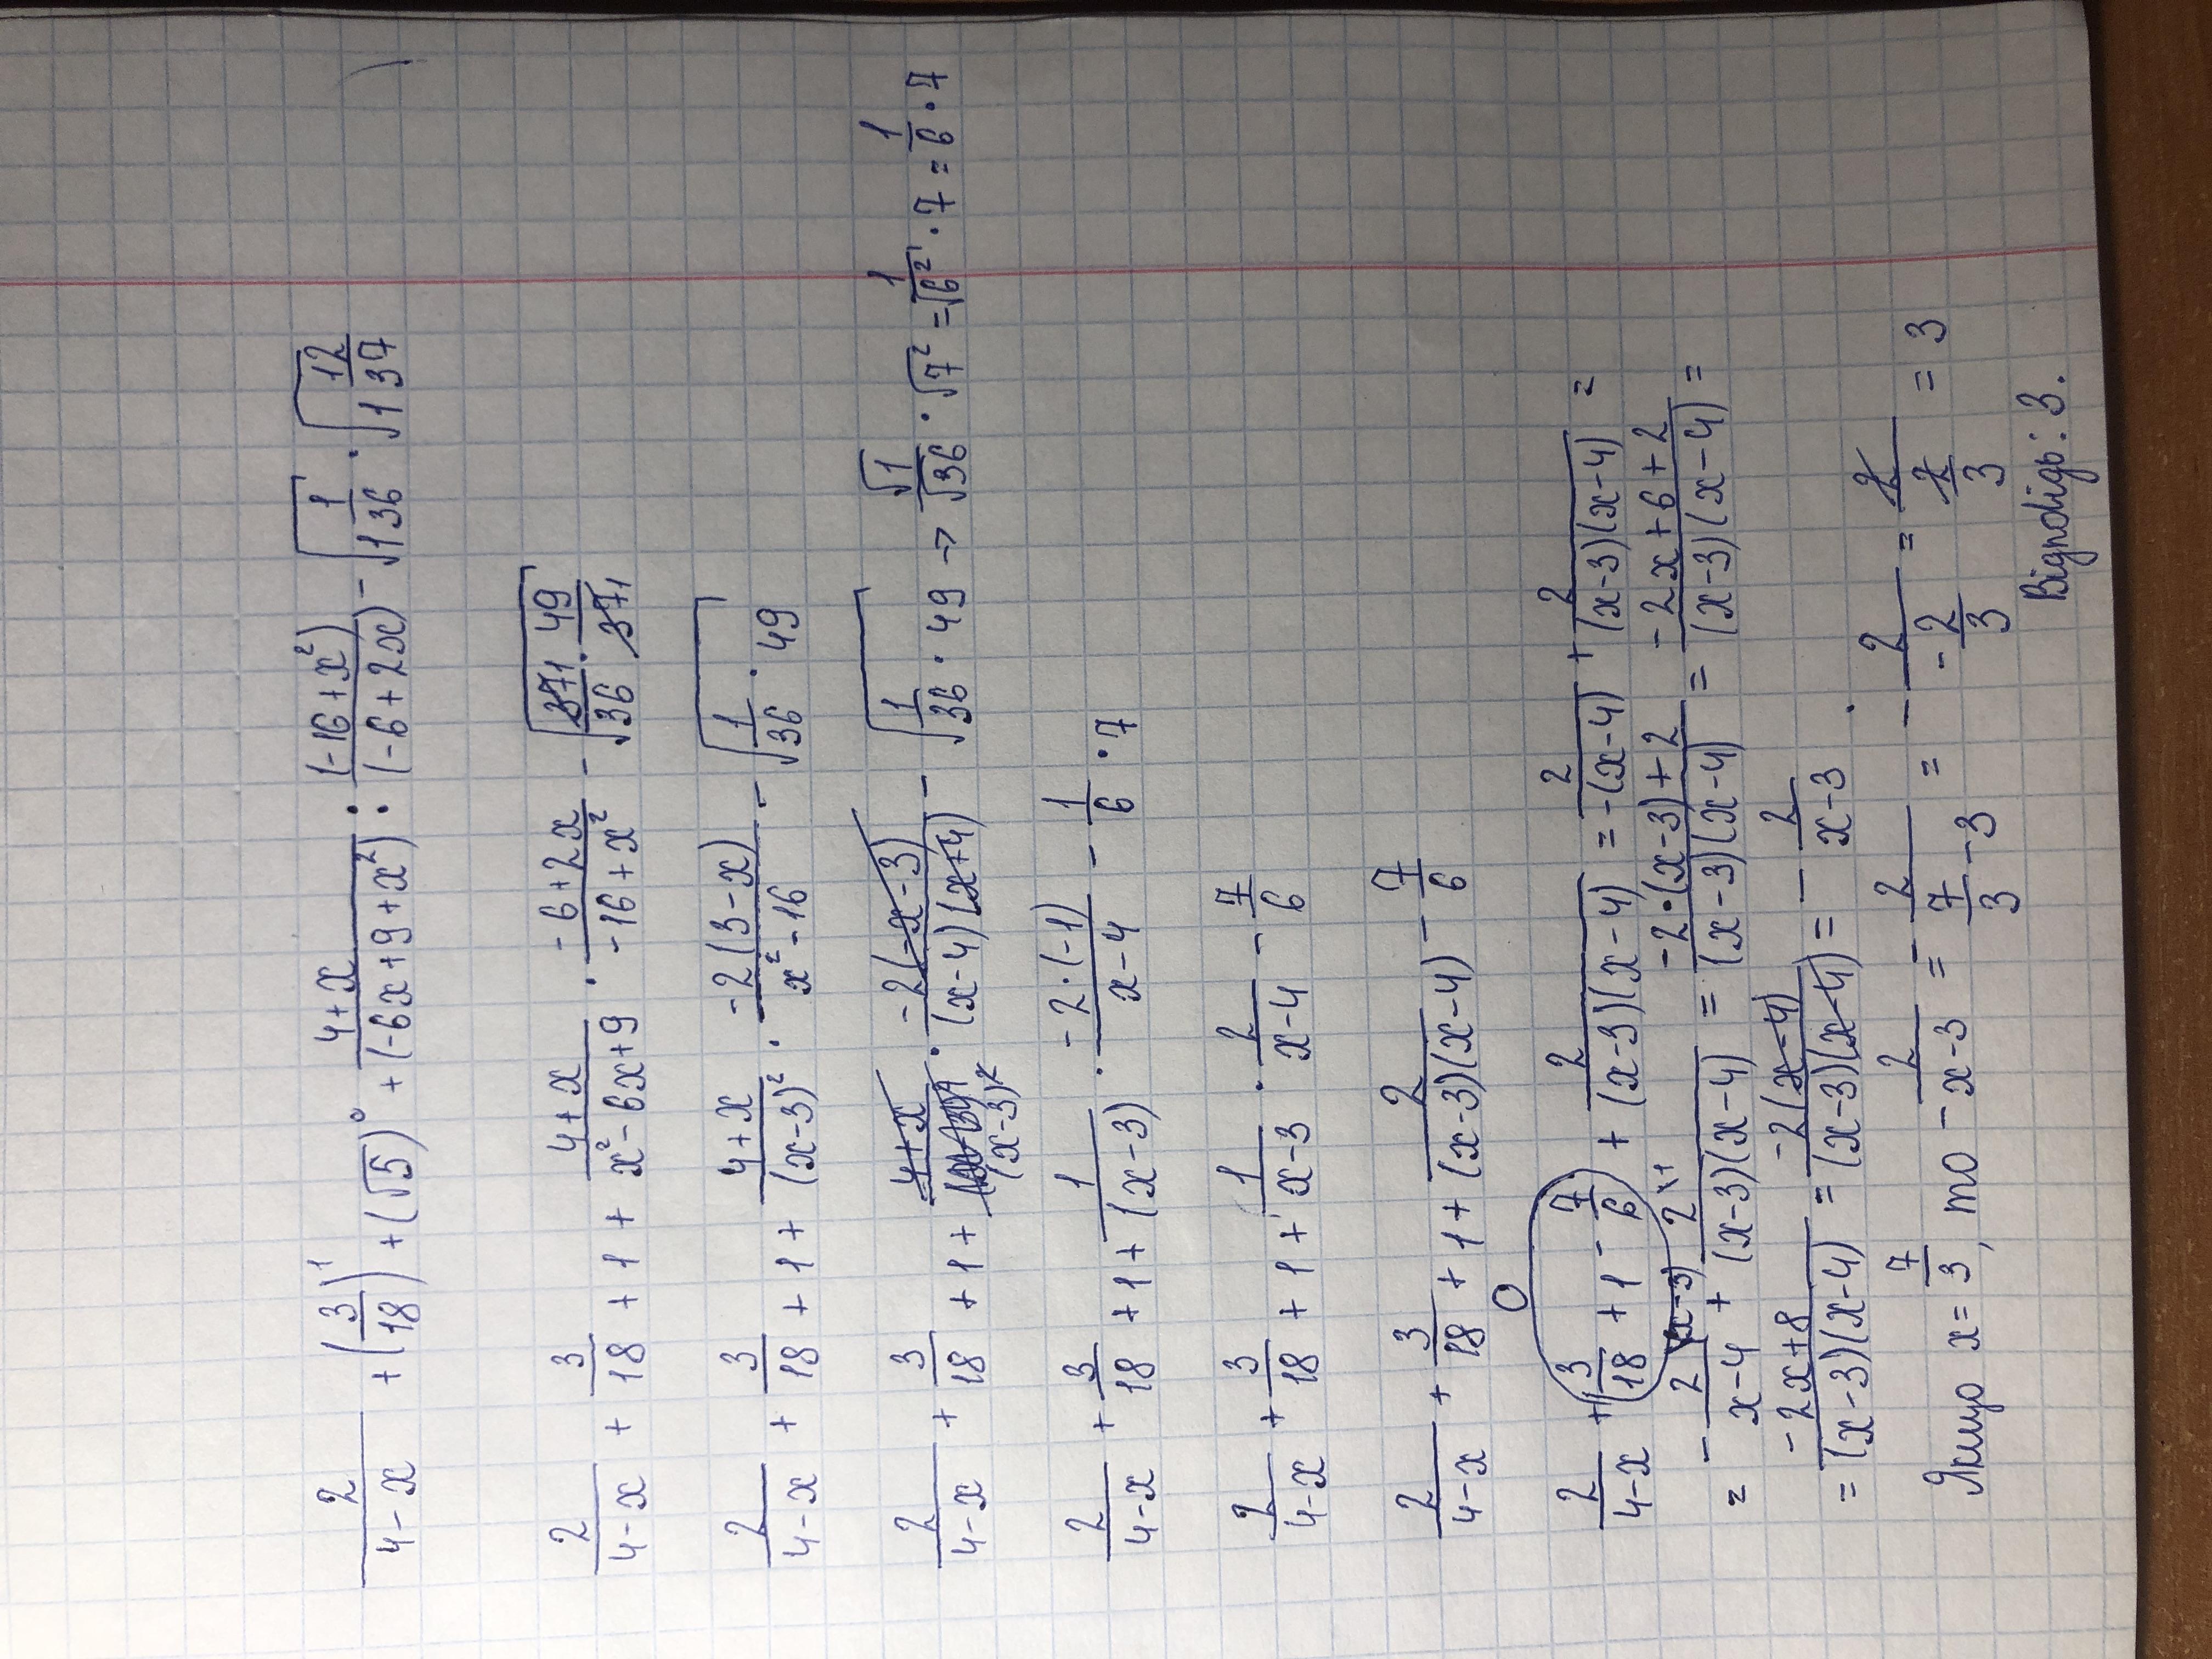 2/(4-x) + (3/18)¹ + (√5)⁰ + (4+x)/(-6x+9+x²) : (-16+x²)/(-6+2x) - √(1 1/36) · √(1 12/37)
2/(4-x) + 3/18 + 1 + (4+x)/(x²-6x+9) · (-6+2x)/(-16+x²) - √(37 1/36 · 49/37 1)
2/(4-x) + 3/18 + 1 + (4+x)/(x-3)² · (-2(3-x))/(x²-16) - √(1/36 · 49)
2/(4-x) + 3/18 + 1 + (4+x)/(x-3)² · (-2(-x-3))/((x-4)(x+4)) - √(1/36 · 49) → √1/√36 · √7² = 1/√6² · 7 = 1/6 · 7
2/(4-x) + 3/18 + 1 + 1/(x-3) · (-2·(-1))/(x-4) - 1/6 · 7
2/(4-x) + 3/18 + 1 + 1/(x-3) · 2/(x-4) - 7/6
2/(4-x) + 3/18 + 1 + 2/((x-3)(x-4)) - 7/6
0
2/(4-x) + (3/18 + 1 - 7/6) + 2/((x-3)(x-4)) = 2/(-(x-4)) + 2/((x-3)(x-4)) =
= - 2\(x-3)/(x-4) + 2\×1/((x-3)(x-4)) = (-2·(x-3)+2)/((x-3)(x-4)) = (-2x+6+2)/((x-3)(x-4)) =
= (-2x+8)/((x-3)(x-4)) = (-2(x-4))/((x-3)(x-4)) = - 2/(x-3)
Якщо x = 7/3, то - 2/(x-3) = - 2/(7/3 - 3) = - 2/(- 2/3) = 2/(2/3) = 3
Відповідь: 3.